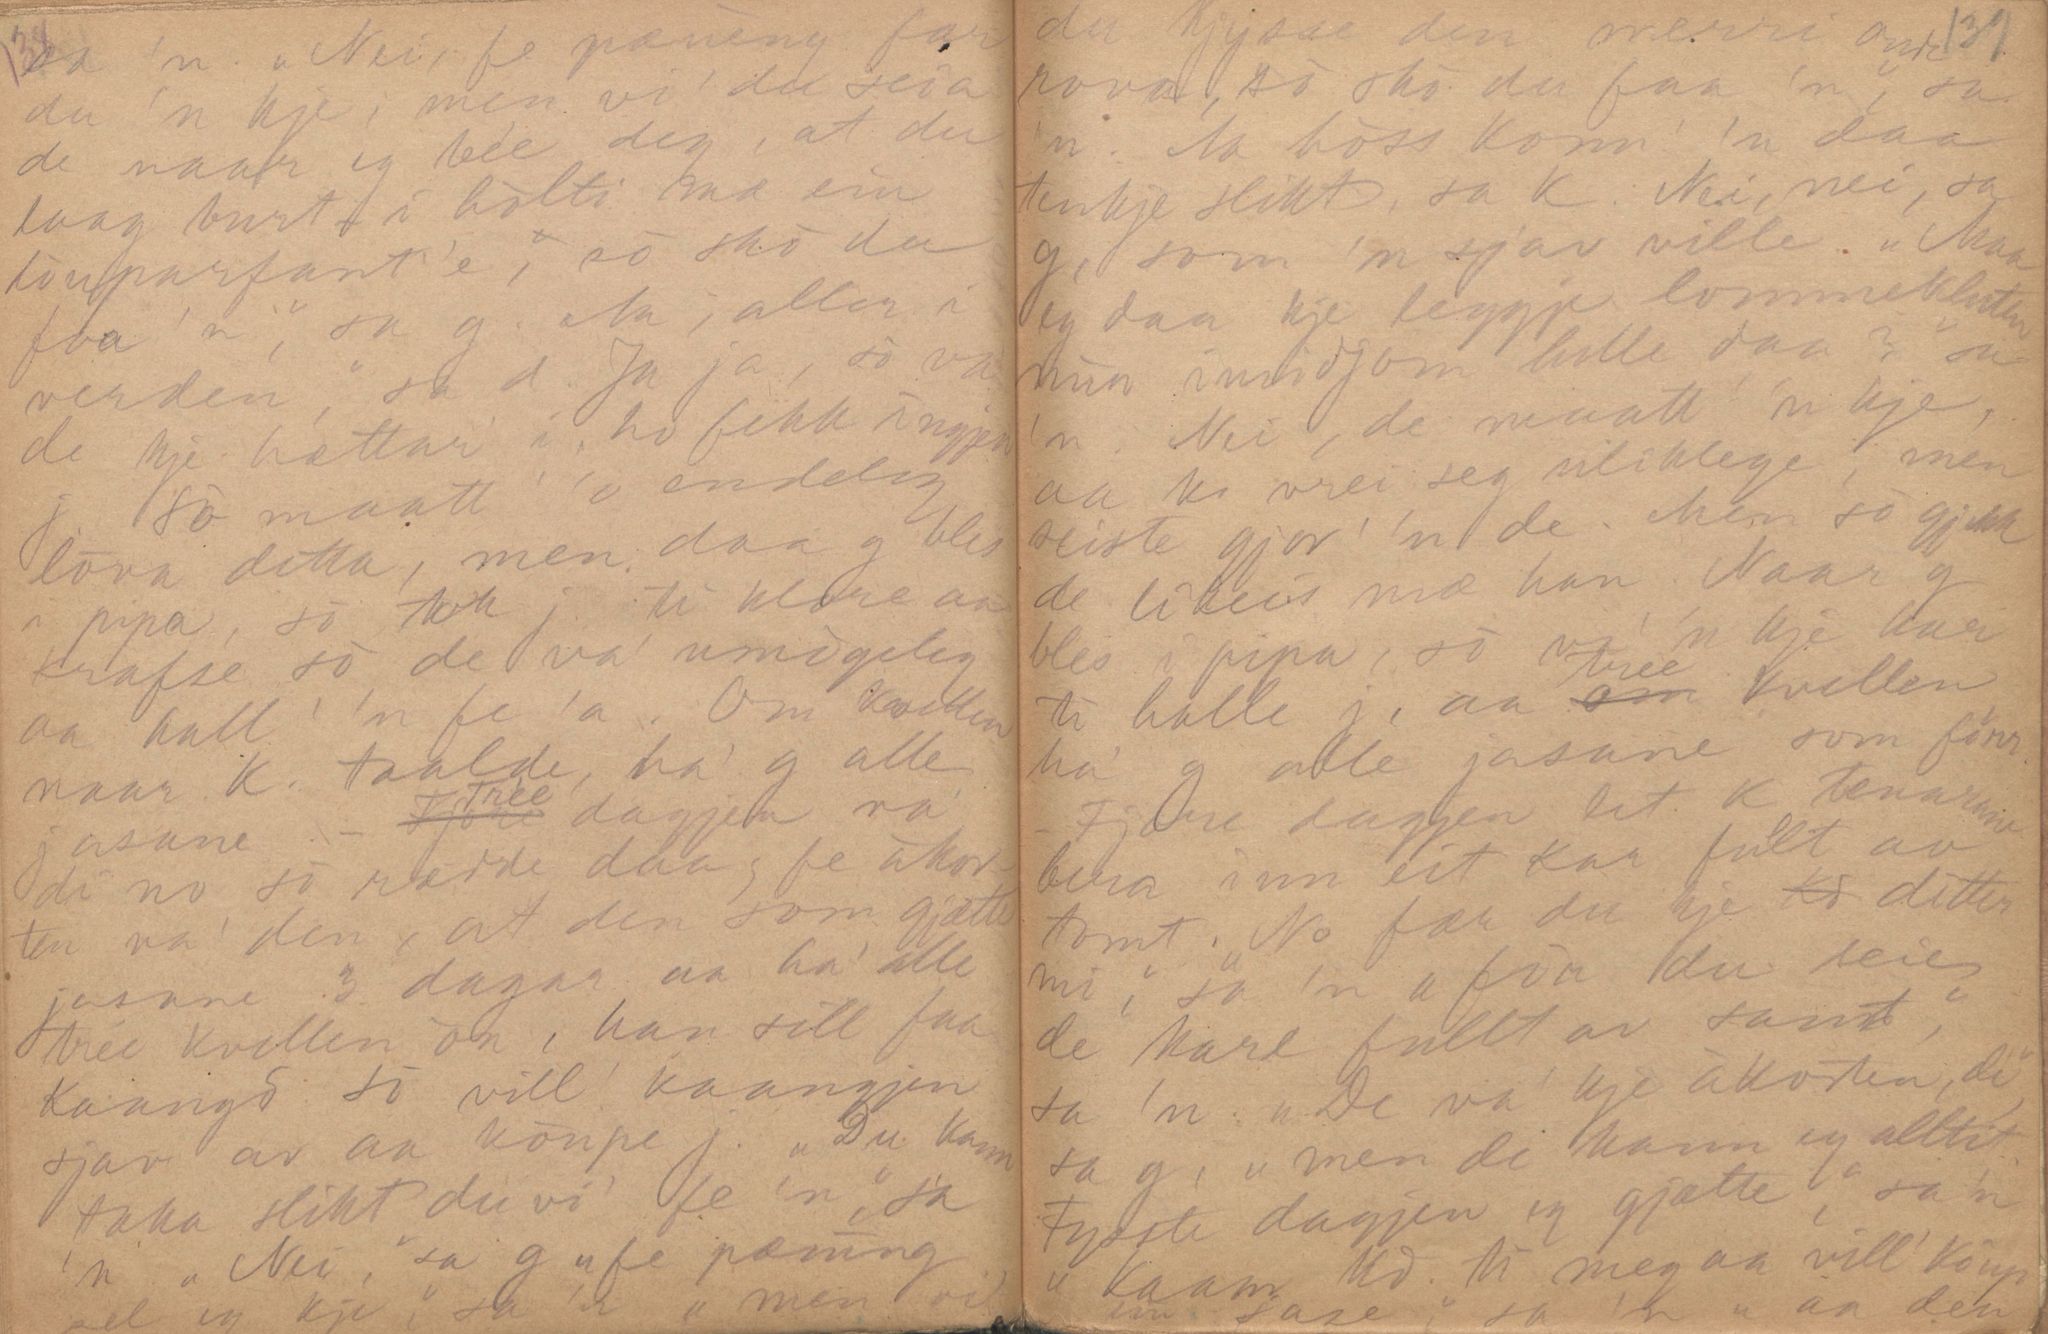 138
sa 'n. „Nei, fe pæning far
du 'n kje, men vi' du seia
de naar eg bée deg, at du
laag burt i hôlti mæ ein
lôuparfant'e, sô skô du
faa 'n", sa g. Aa, aller i
verden", sa d. Ja ja, sô va
de kje bættar i, ho fekk ingjen
j. Sô maatt' 'o endeleg
lôva ditta, men daa g bles
i pipa, sô tok j. ti klore aa
krafse sô de va' umôgeleg
aa hall' 'n fe 'a. Om kvellen
naar K. taalde, ha' g alle
jasane. – trée dagjen va'
di no sô rædde daa, fe åkor-
ten va' den, at den som gjætte
jasane 3 dagar aa ha' alle
trée kvellen ôn, han sill faa
Kaangô sô vill' kaangjen
sjav av aa kôupe j. „Du kann
taka slikt du vi' fe 'n", sa
'n. „Nei," sa g „fe pæning
sel eg kje", sa 'n „men vi'
139
du kjysse den merri onde
rova, sô skô du faa 'n", sa
'n. Aa hôss konn' 'n daa
tenkje slikt, sa K. Nei, nei, sa
g, som 'n sjav ville. „Maa
eg daa kje leggje lommekluten
min imidjom halle daa?" sa
'n. Nei, de maatt' 'n kje,
aa K. vrei seg uliklege, men
seiste gjor' 'n de. Men sô gjekk
de likeis mæ han. Naar g
bles i pipa, sô va' 'n kje kar
ti halle j, aa trée kvellen
ha' g alle jasane som fôrr.
– Fjore dagjen let K tenarane
bera inn eit kar fullt av
tomt. „No fær du kje ditter
mi", sa 'n „fôr du seier
de karl fullt av sant,"
sa 'n. „De va' kje åkorten, di",
sa g, „men de kann eg alltit.
Fysste dagjen eg gjætte", sa 'n
„kaam K.d. ti meg aa vill' kôup
ein jase", sa 'n „aa den